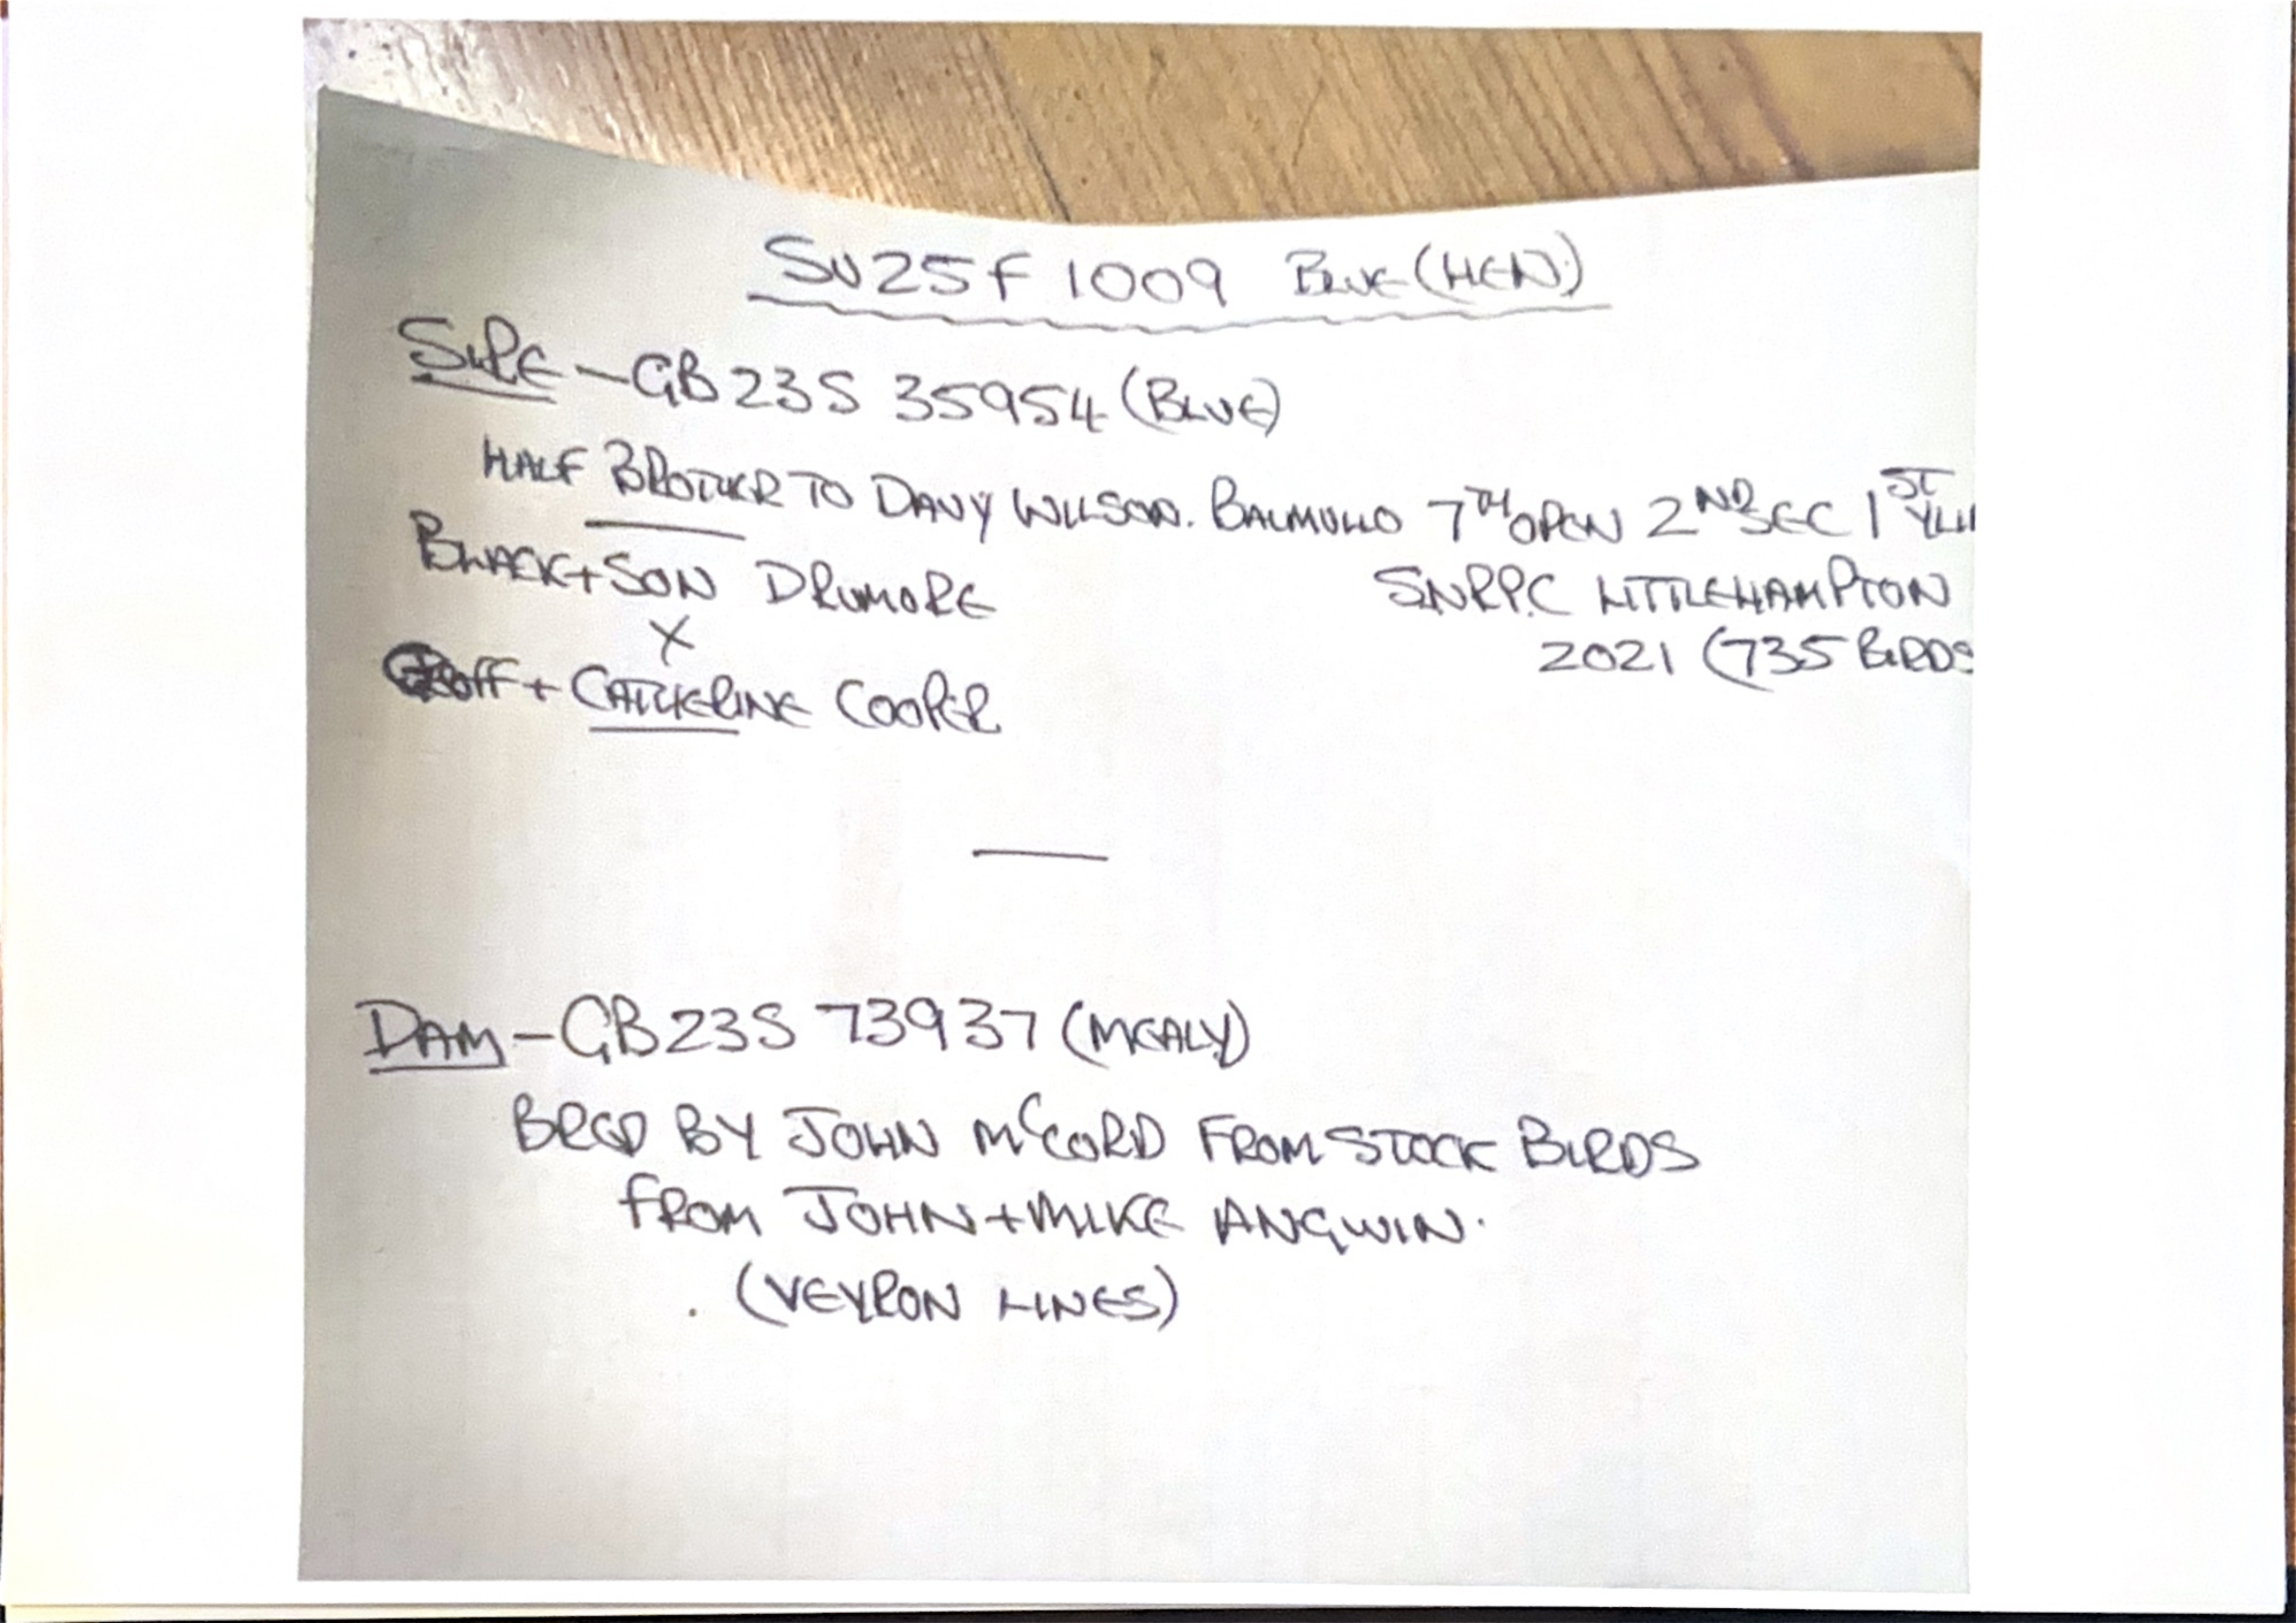 SU25F 1009 BLUE (HEN)
SIRE - GB 23S 35954 (BLUE)
HALF BROTHER TO DAVY WILSON. BALMULLO 7TH OPEN 2ND SEC 1ST
BLACK + SON DRUMORE
SNRPC LITTLEHAMPTON
X
2021 (735 BIRDS
Geoff + CATHERINE COOPER
DAM - GB 23S 73937 (MEALY)
BRED BY JOHN McCORD FROM STOCK BIRDS
FROM JOHN + MIKE ANGWIN.
(VEYRON LINES)